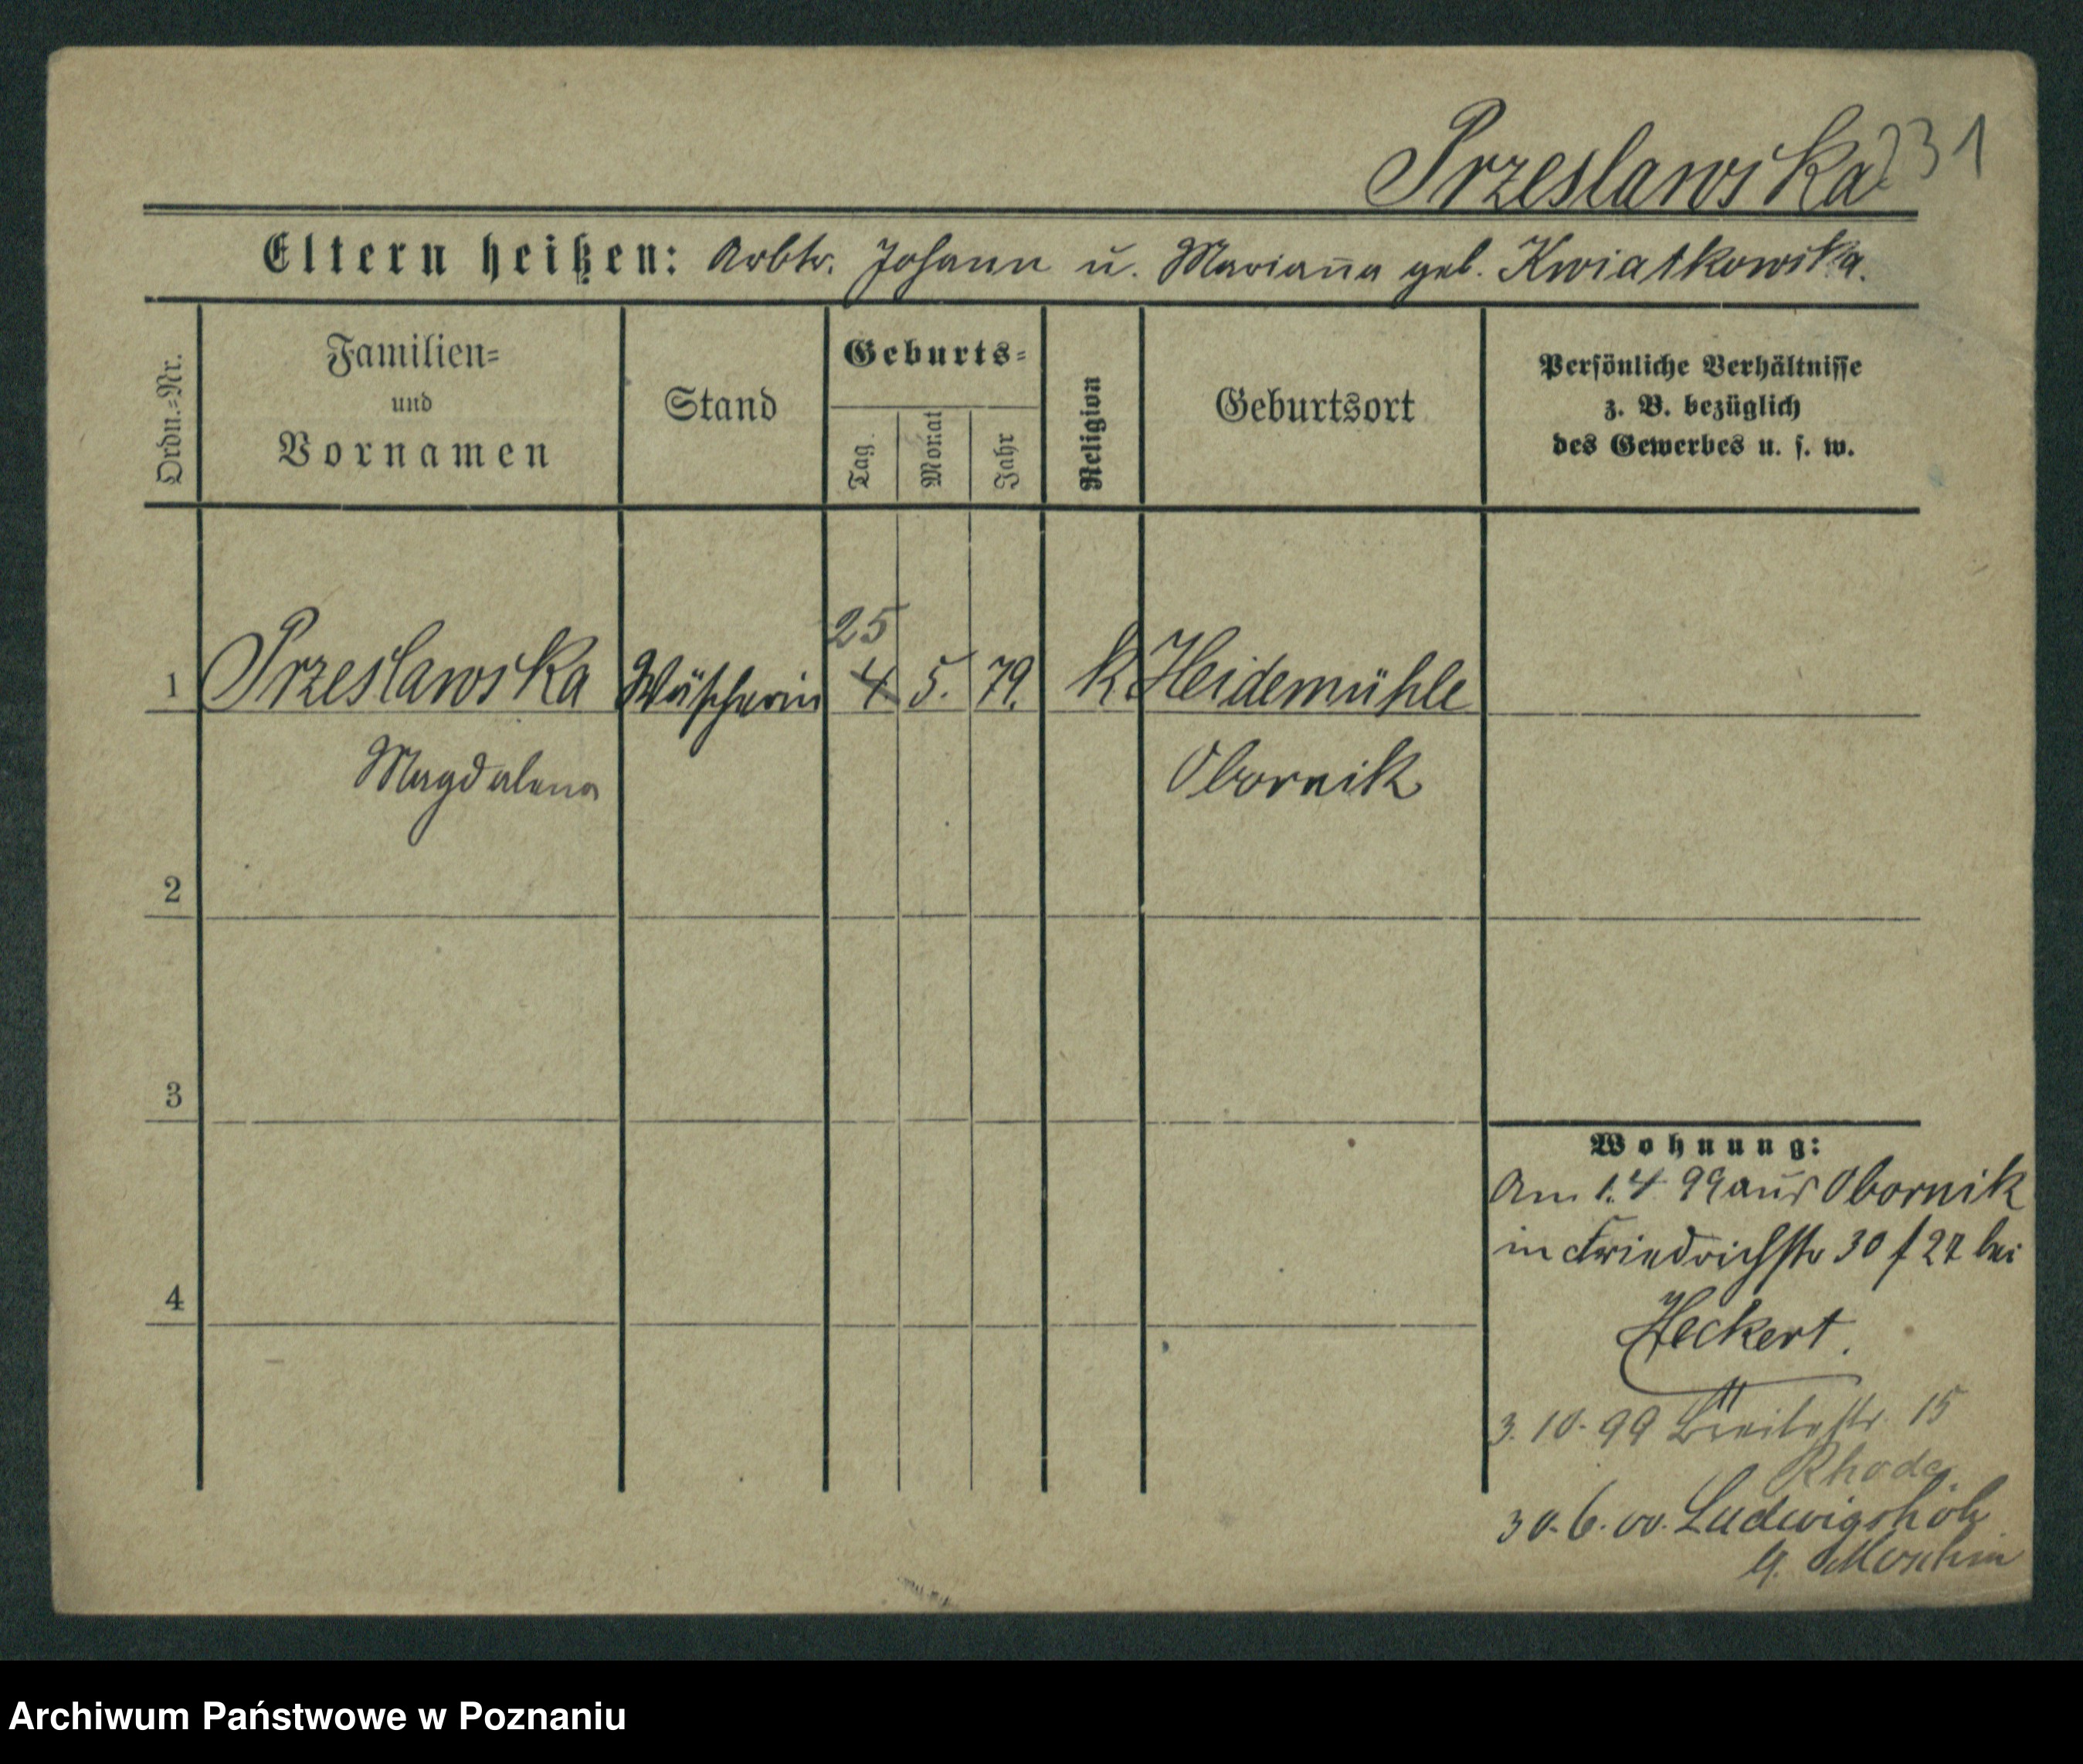 231
Przeslawska
Eltern heißen: Arbtr. Johann u. Marianna geb. Kwiatkowska.
Ordn.=Nr.
Familien=
und
Vornamen
Stand
Geburts=
Tag.
Monat
Jahr
Religion
Geburtsort
Persönliche Verhältnisse
z. B. bezüglich
des Gewerbes u. s. w.
25
1 Przeslawska Wäscherin 4. 5. 79. k. Heidemühle
Magdalena Obornik
2
3
4
Wohnung:
Am 1.4.99 aus Obornik
in Friedrichstr 30 / 27 bei
Heckert.
3.10.99 Breitestr. 15
Rhode
30.6.00. Ludwigshöh
Moschin
Archiwum Państwowe w Poznaniu